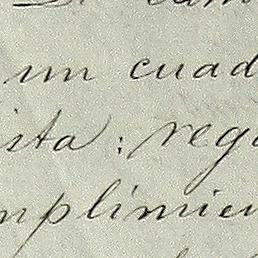 un cuad
ista: rega
mplimien